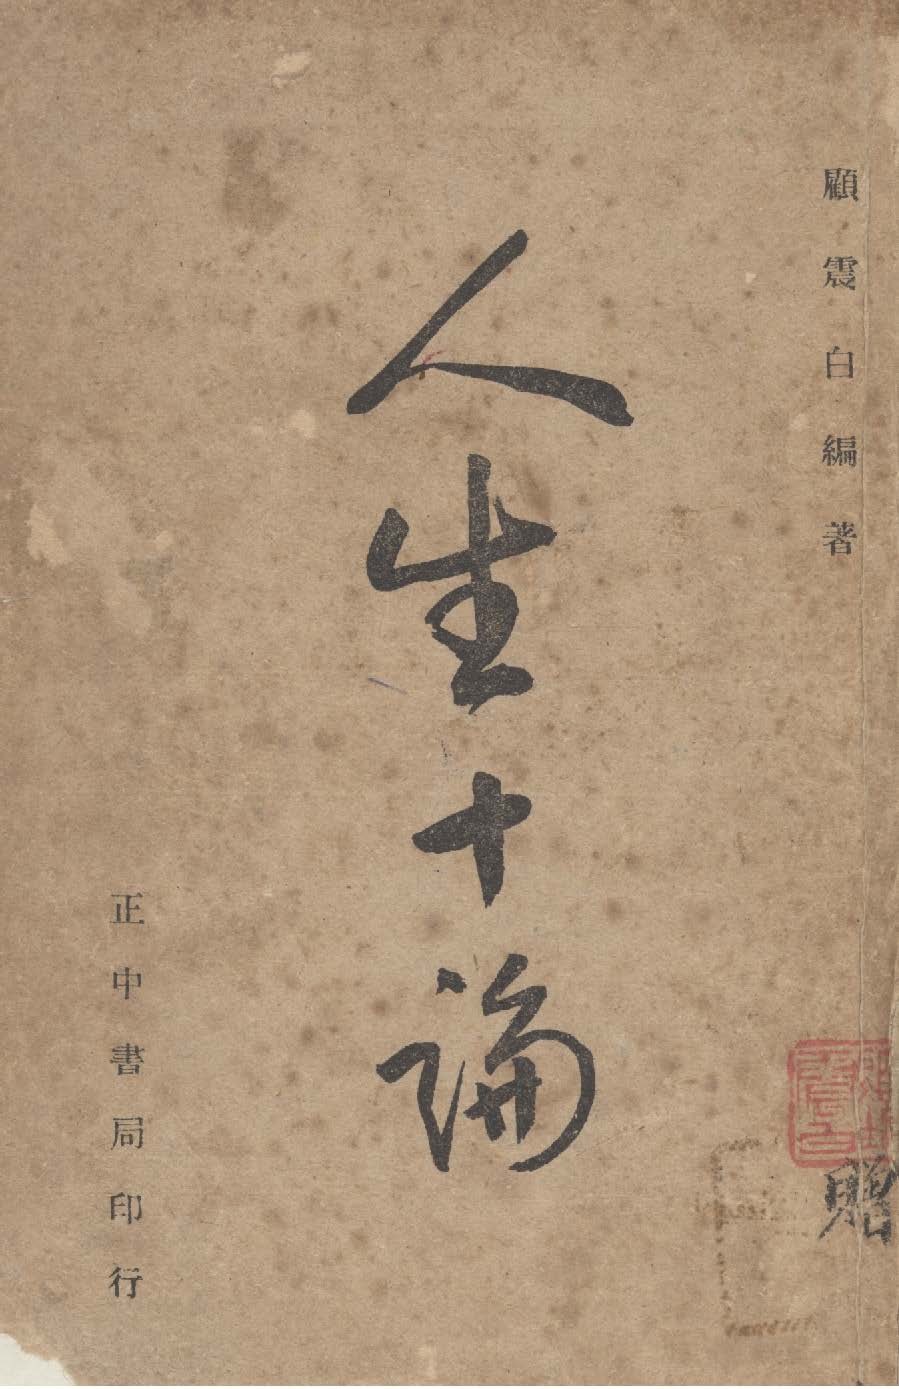 顧震白編著
人生十論
正中書局印行
贈